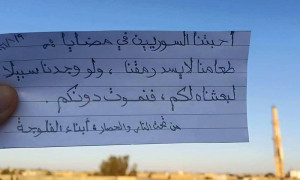 أحبتنا السوريين في مضايا
طعامنا لا يسد رمقنا ، ولو وجدنا سبيلا
لبعثناه لكم ، فنموت دونكم .
من تحت النار والحصار ، أبناء الفلوجة